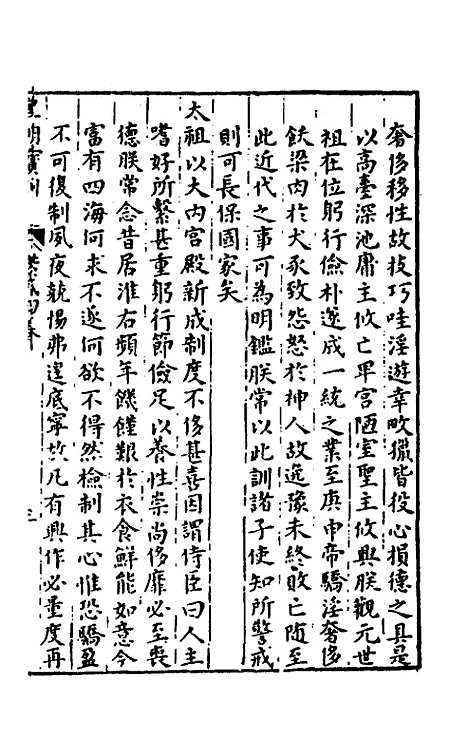 奢侈移性故技巧哇淫遊幸畋獵皆役心損德之具是
以高臺深池庸主攸亡卑宮陋室聖主攸興朕觀元世
祖在位躬行儉朴遂成一統之業至庚申帝驕淫奢侈
飫粱肉於犬豕致怨怒於神人故逸豫未終敗亡隨至
此近代之事可為明鑑朕常以此訓諸子使知所警戒
則可長保國家矣
太祖以大內宮殿新成制度不侈甚喜因謂侍臣曰人主
嗜好所繫甚重躬行節儉足以養性崇尚侈靡必至喪
德朕常念昔居淮右頻年饑饉艱於衣食鮮能如意今
富有四海何求不遂何欲不得然檢制其心惟恐驕盈
不可復制夙夜兢惕弗遑底寧故凡有興作必量度再
皇明寶訓
三